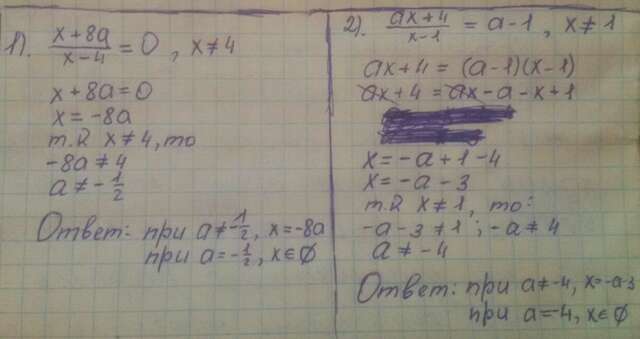 1). (x+8a)/(x-4) = 0, x≠4
x+8a=0
x=-8a
т.к x≠4, то
-8a≠4
a≠-1/2
Ответ: при a≠-1/2, x=-8a
при a=-1/2, x∈∅
2). (ax+4)/(x-1) = a-1, x≠1
ax+4 = (a-1)(x-1)
ax+4 = ax-a-x+1
x=-a+1-4
x=-a-3
т.к x≠1, то:
-a-3≠1; -a≠4
a≠-4
Ответ: при a≠-4, x=-a-3
при a=-4, x∈∅